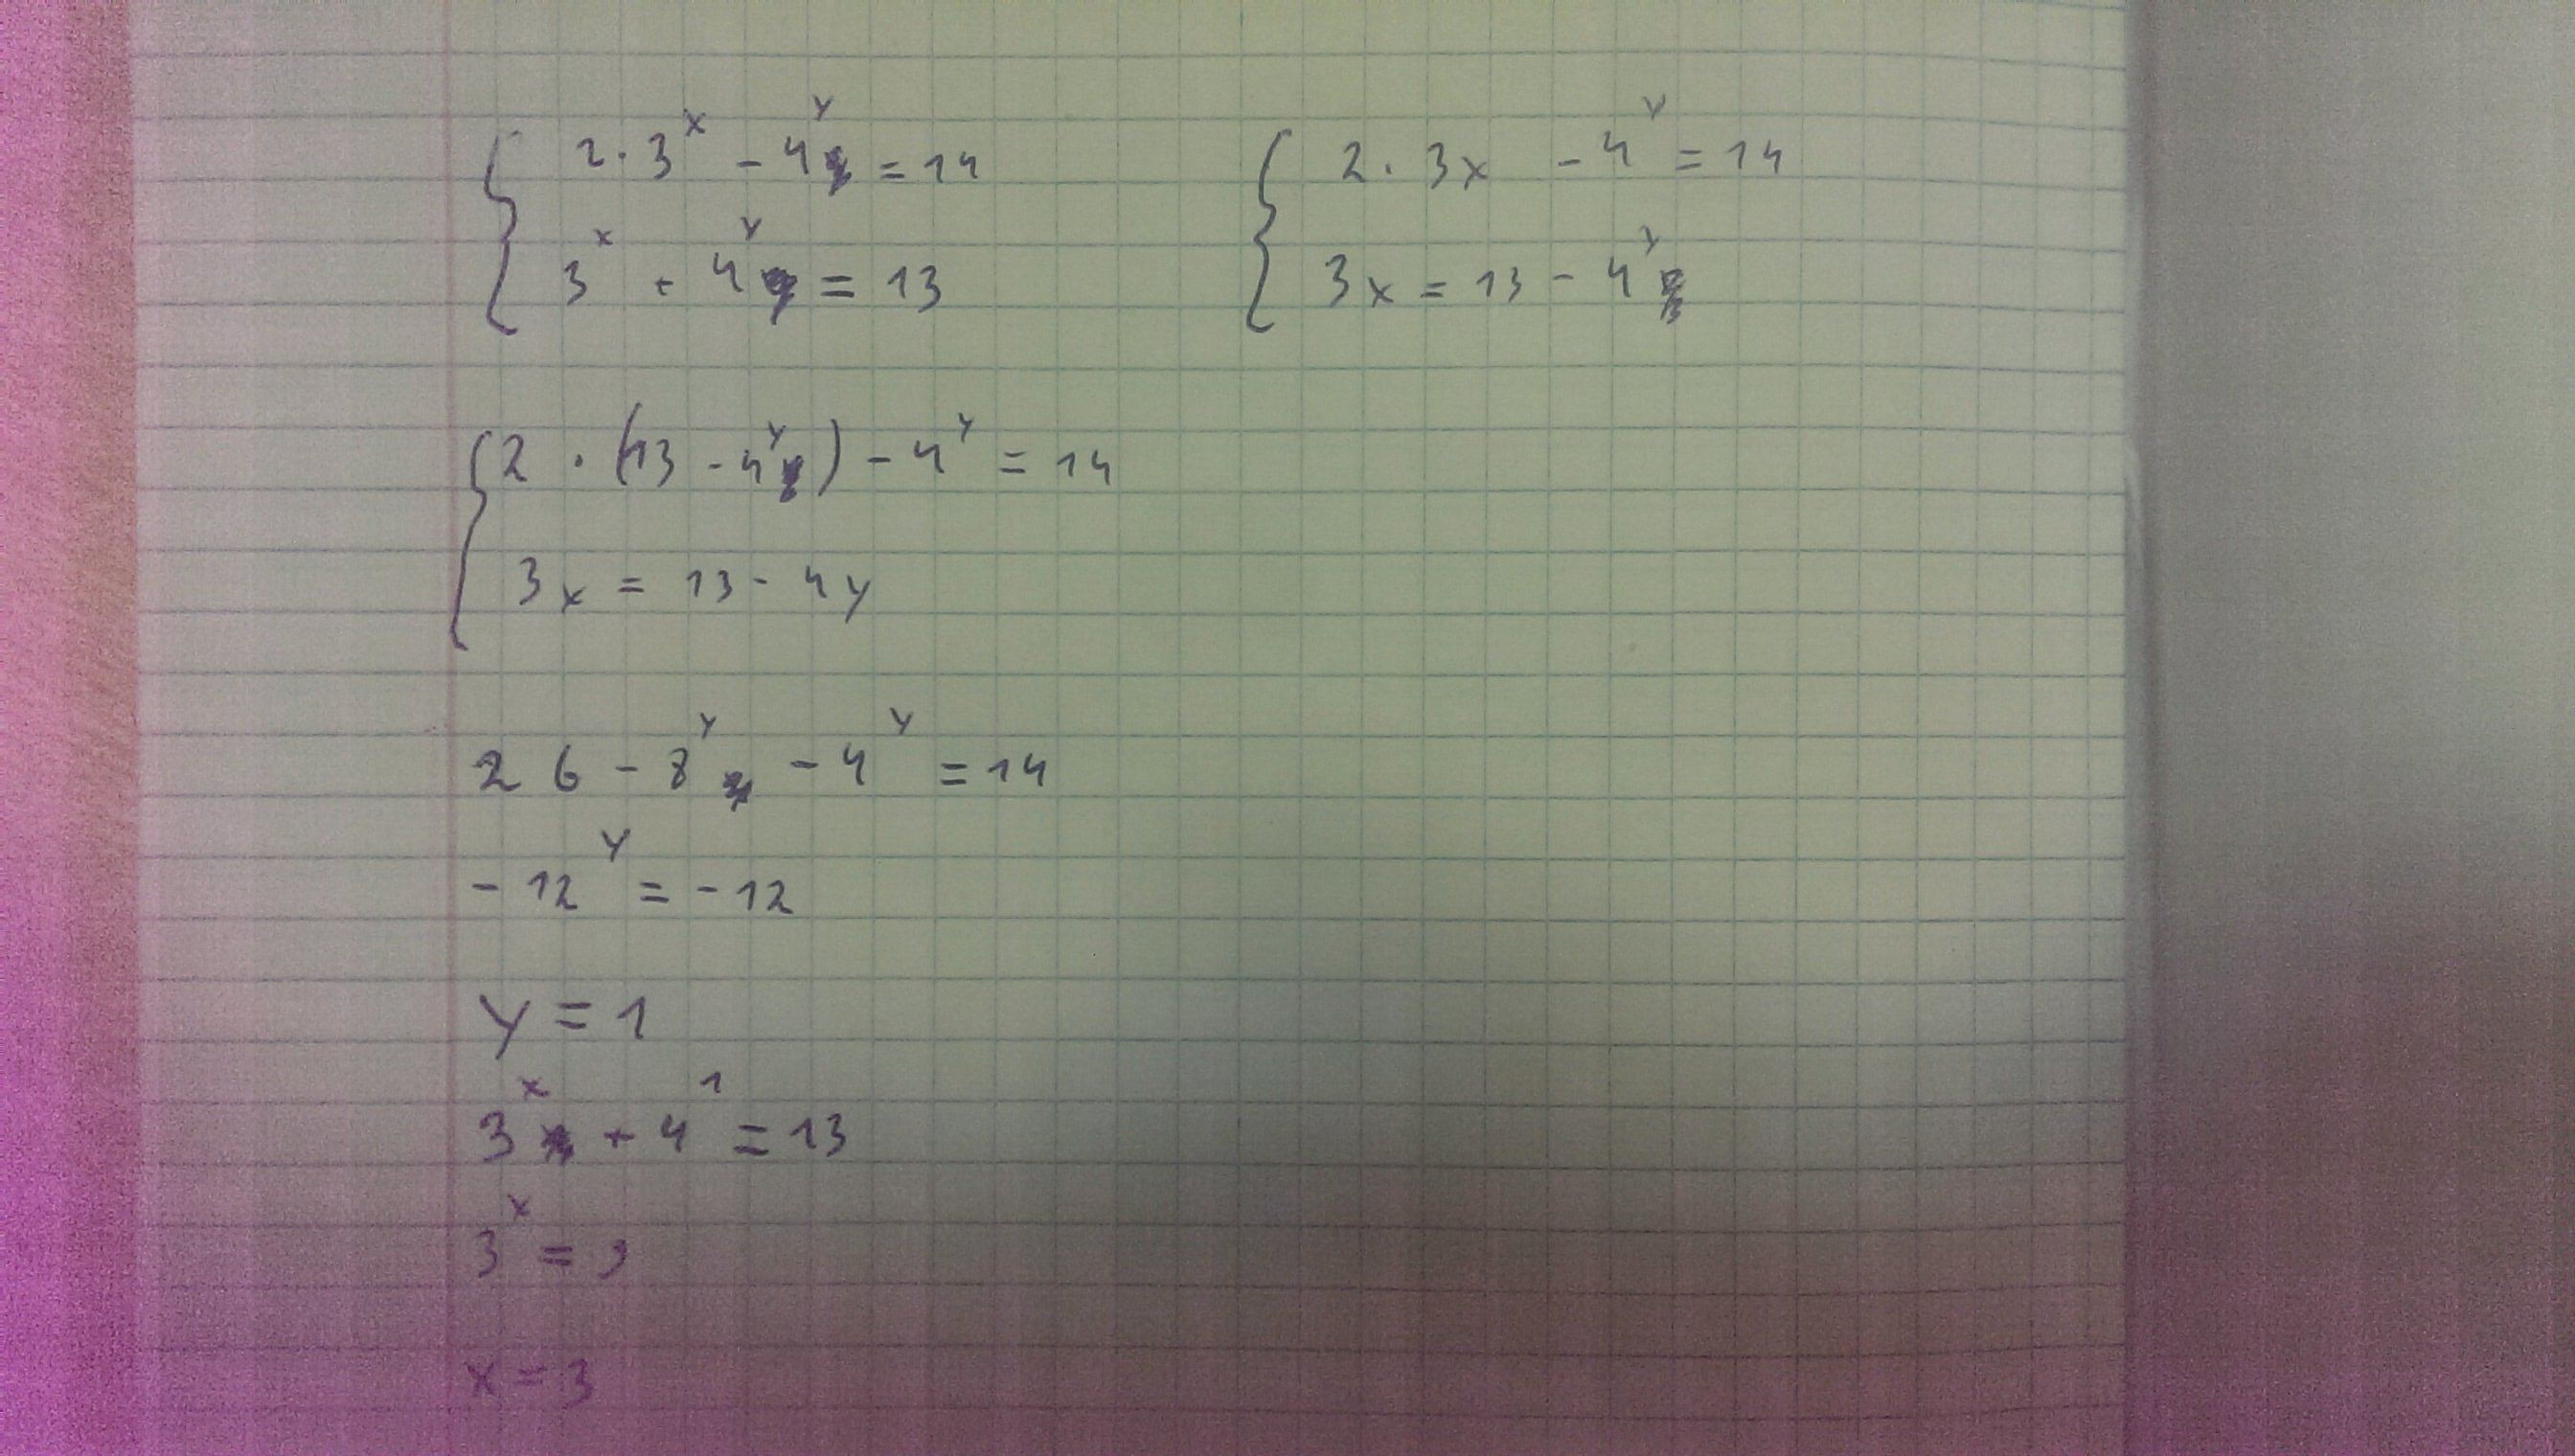 2 · 3^x - 4^y = 14
3^x + 4^y = 13
2 · 3x - 4^y = 14
3x = 13 - 4^y
2 · (13 - 4^y) - 4^y = 14
3x = 13 - 4y
26 - 8^y - 4^y = 14
- 12^y = - 12
y = 1
3^x + 4^1 = 13
3^x = 9
x = 3